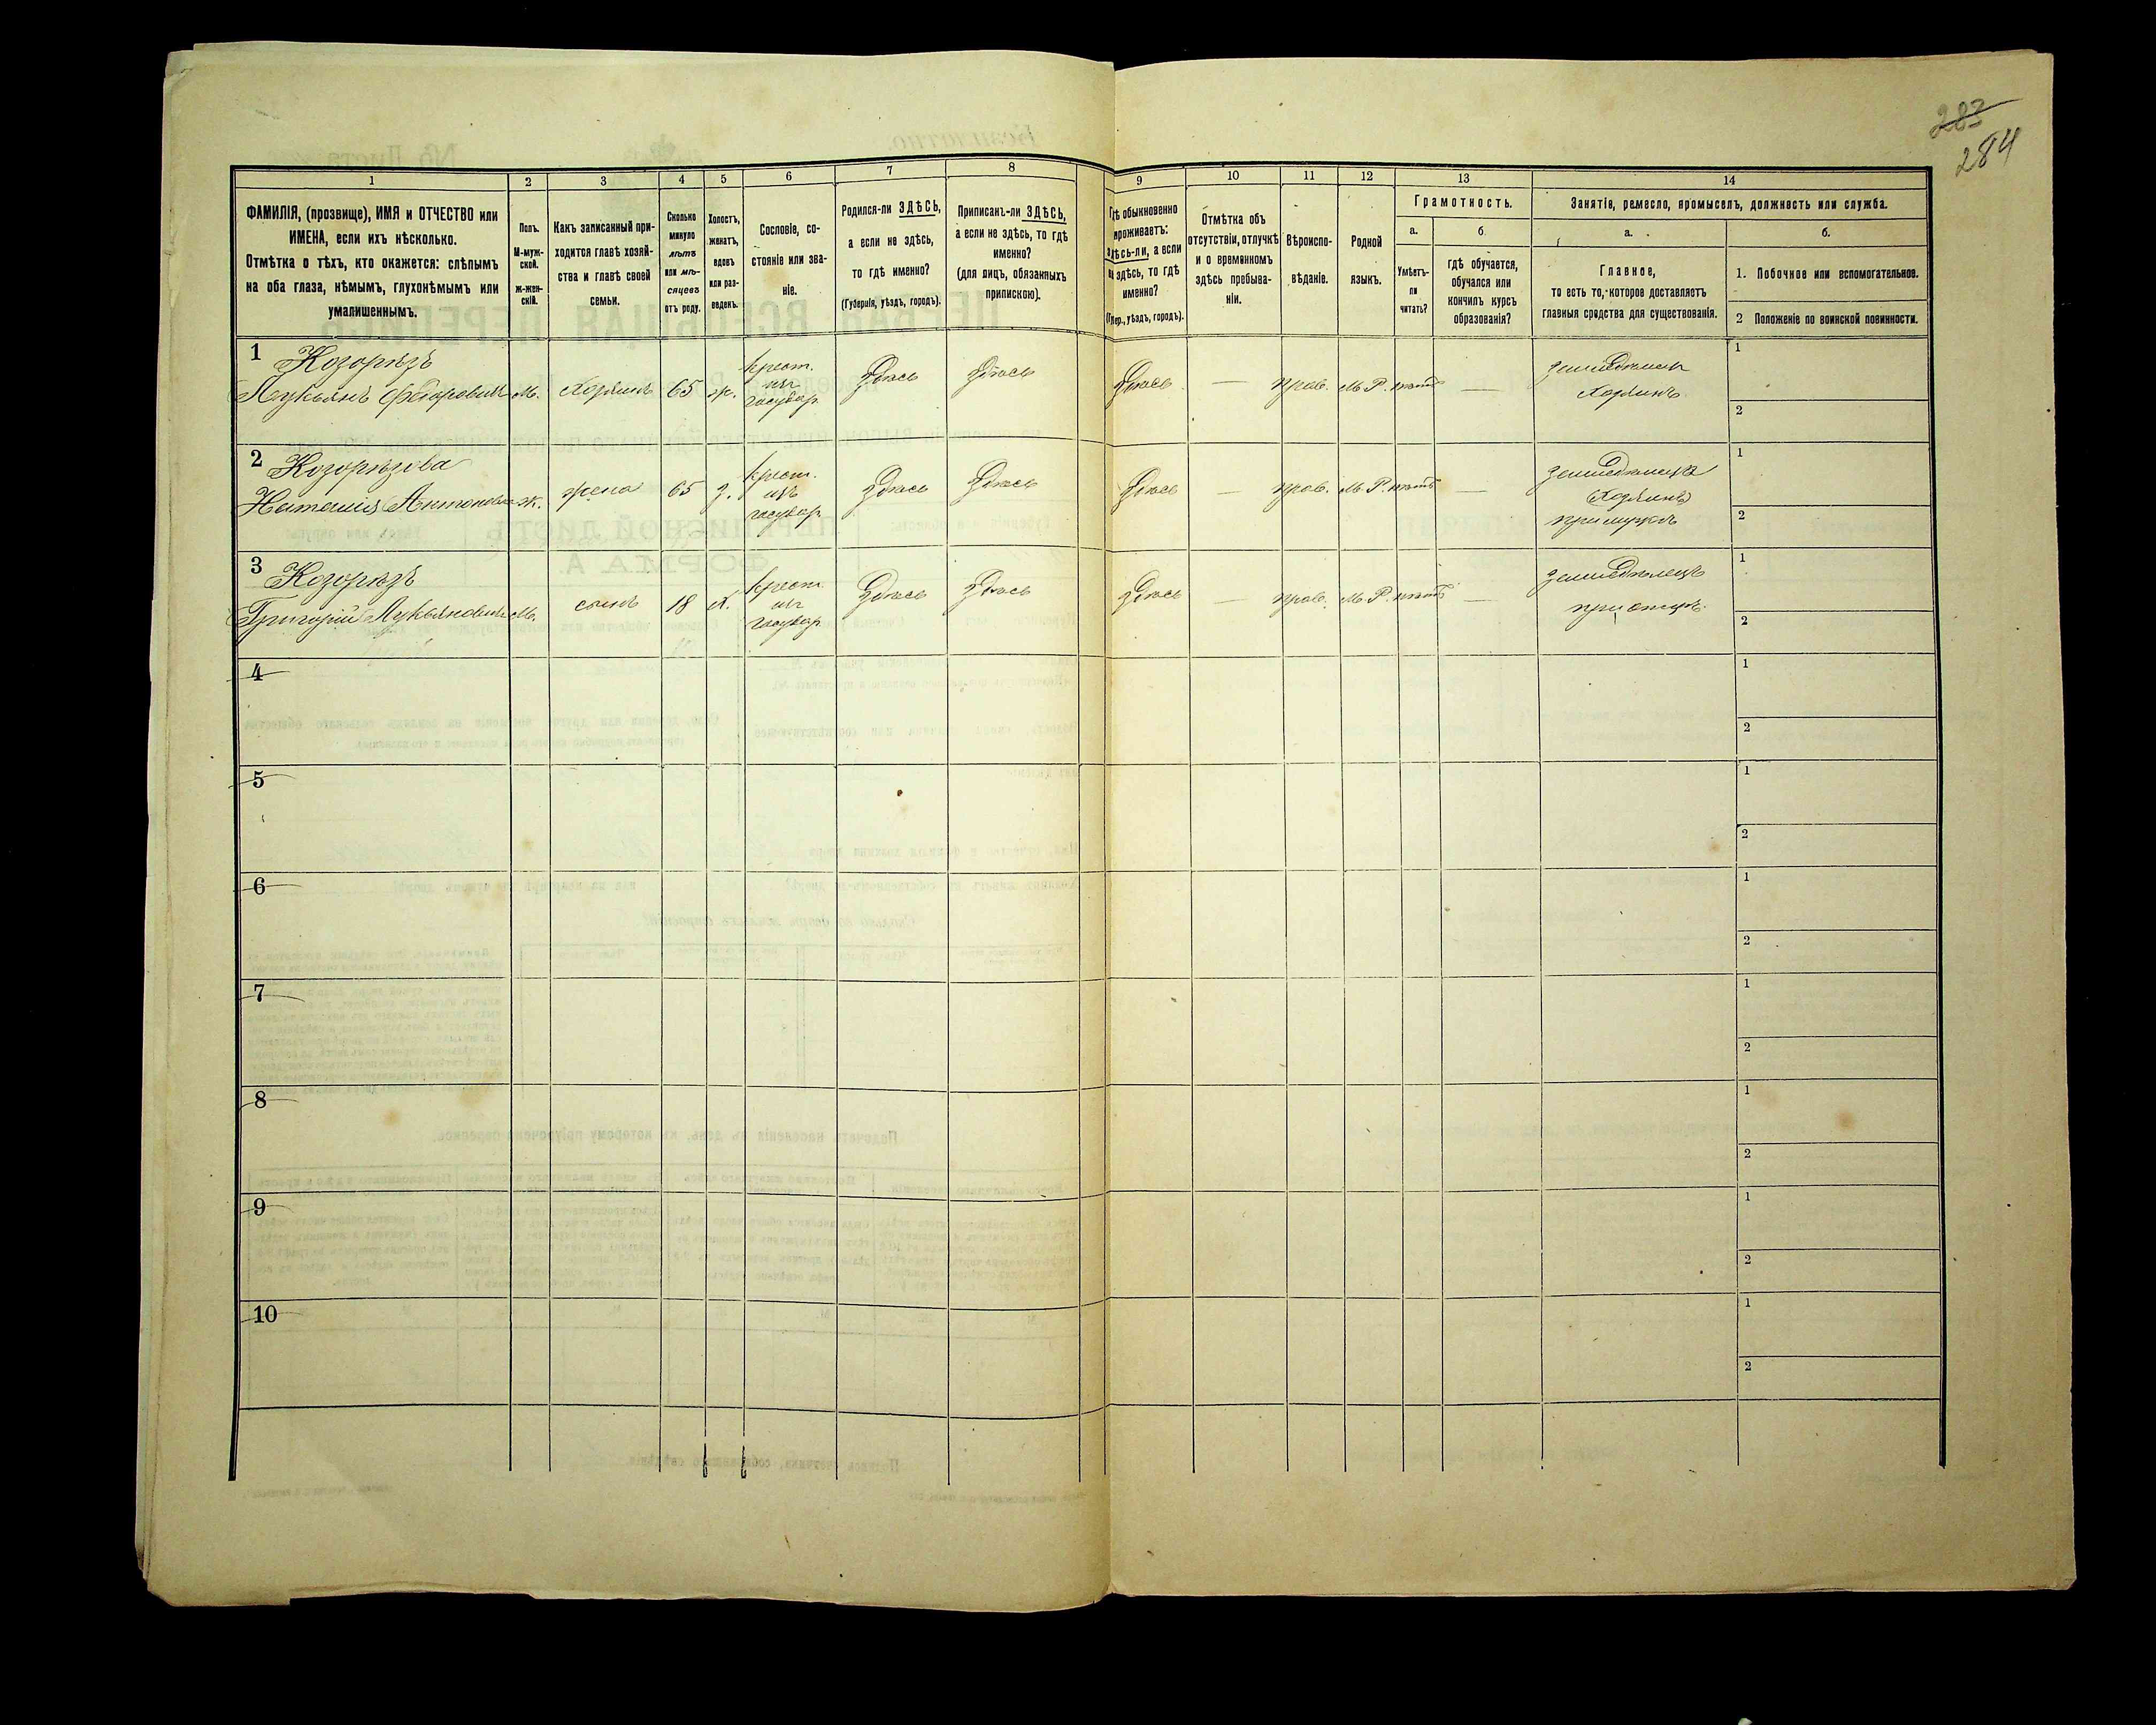 283
284
1
2
3
4
5
6
7
8
9
10
11
12
13
14
ФАМИЛІЯ, (прозвище), ИМЯ и ОТЧЕСТВО или
ИМЕНА, если ихъ нѣсколько.
Отмѣтка о тѣхъ, кто окажется: слѣпымъ
на оба глаза, нѣмымъ, глухонѣмымъ или
умалишеннымъ.
Полъ.
М-муж-
ской.
ж-жен-
скій.
Какъ записанный при-
ходится главѣ хозяй-
ства и главѣ своей
семьи.
Сколько
минуло
лѣтъ
или мѣ-
сяцевъ
отъ роду.
Холостъ,
женатъ,
вдовъ
или раз-
веденъ.
Сословіе, со-
стояніе или зва-
ніе.
Родился-ли ЗДѢСЬ,
а если не здѣсь,
то гдѣ именно?
(Губернія, уѣздъ, городъ).
Приписанъ-ли ЗДѢСЬ,
а если не здѣсь, то гдѣ
именно?
(для лицъ, обязанныхъ
припискою).
Гдѣ обыкновенно
проживаетъ:
здѣсь-ли, а если
не здѣсь, то гдѣ
именно?
(Губер., уѣздъ, городъ).
Отмѣтка объ
отсутствіи, отлучкѣ
и о временномъ
здѣсь пребыва-
ніи.
Вѣроиспо-
вѣданіе.
Родной
языкъ.
Грамотность.
а.
б.
Умѣетъ-
ли
читать?
гдѣ обучается,
обучался или
кончилъ курсъ
образованія?
Занятіе, ремесло, промыселъ, должность или служба.
а.
б.
Главное,
то есть то, которое доставляетъ
главныя средства для существованія.
1. Побочное или вспомогательное.
2 Положеніе по воинской повинности.
1 Козорѣзъ
Лукьянъ Федоровичъ м. Хозяинъ 65 ж. крест. изъ государ. Здѣсь Здѣсь Здѣсь — прав. М. Р. нѣтъ — земледѣлецъ хозяинъ
1
2
2 Козорѣзова
Наталія Антоновна ж. жена 65 з. крест. изъ государ. Здѣсь Здѣсь Здѣсь — прав. М. Р. нѣтъ — земледѣлецъ (хозяинъ) при мужѣ
1
2
3 Козорѣзъ
Григорій Лукьяновичъ м. сынъ 18 х. крест. изъ государ. Здѣсь Здѣсь Здѣсь — прав. М. Р. нѣтъ — земледѣлецъ при отцѣ.
1
2
4
1
2
5
1
2
6
1
2
7
1
2
8
1
2
9
1
2
10
1
2